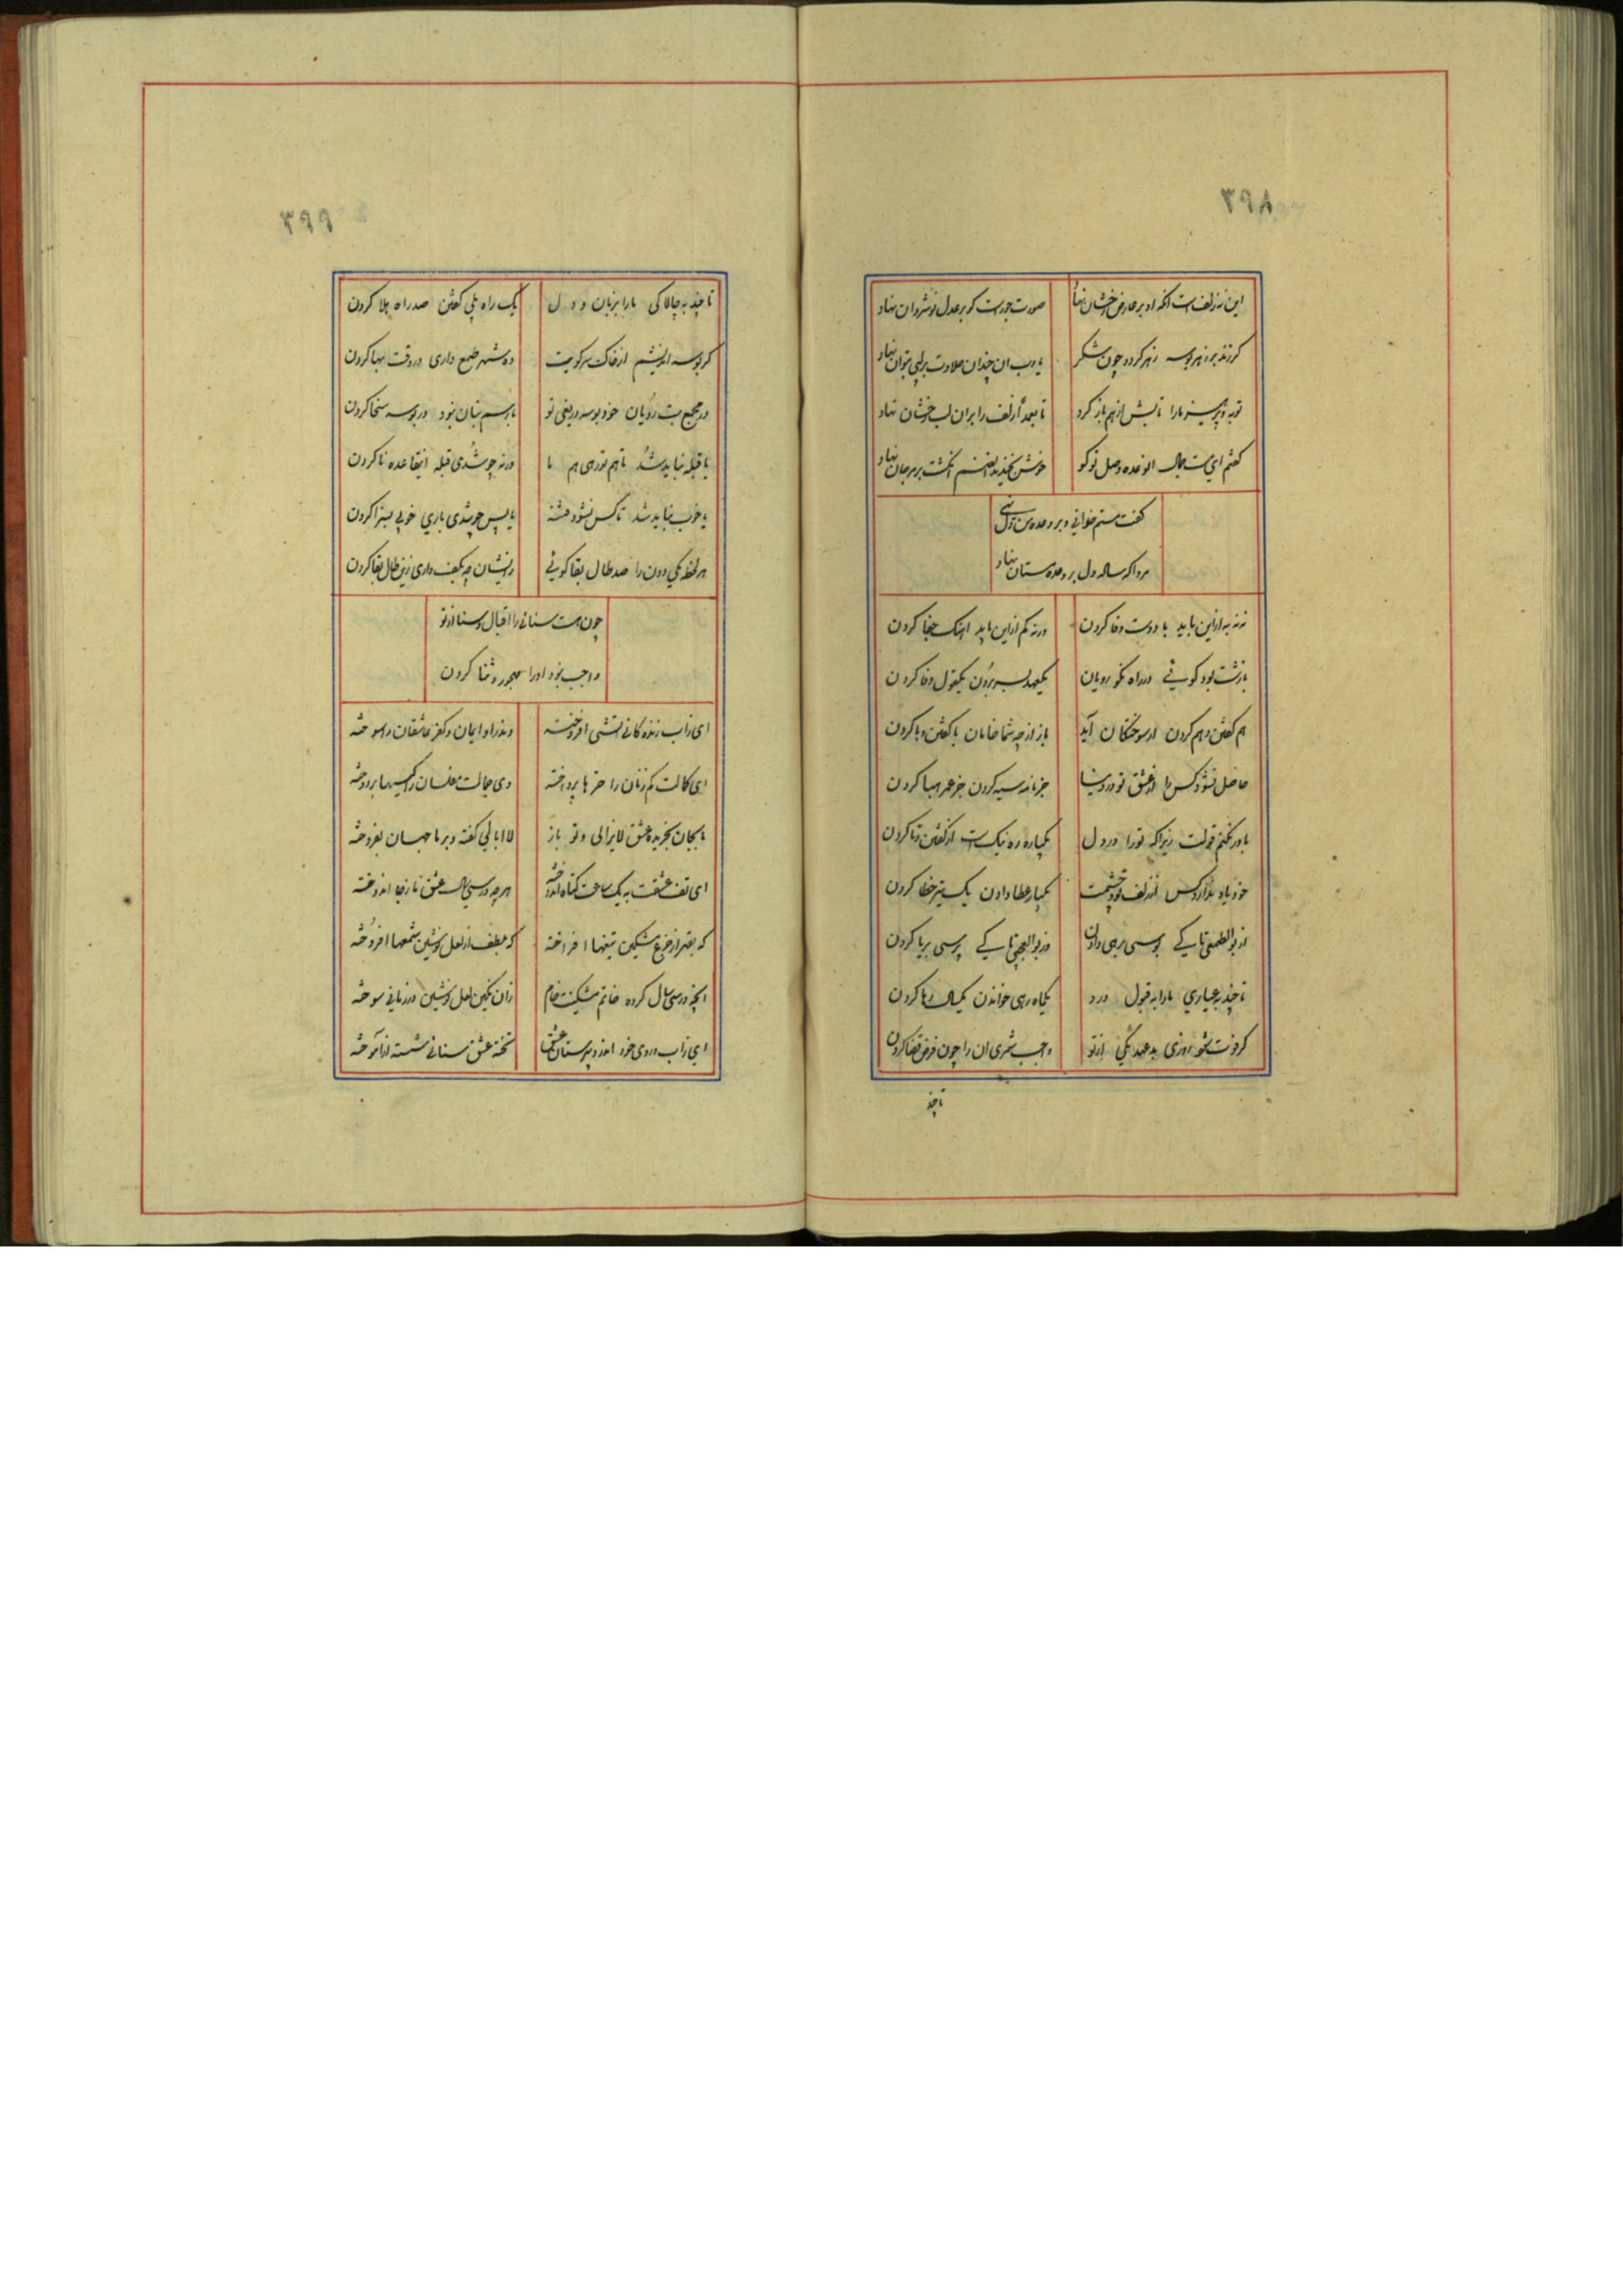 ۳۹۸
این نه زلفست انکه او بر عارض رخشان نهاد صورت جورست کو بر عدل نوشروان نهاد
کر زند بر زهر بوسه زهر کردد چون شکر یا رب ان چندان حلاوت بر لبی بتوان نهاد
توبه و پرهیز مارا تابش از هم باز کرد تا بعمدا زلف را بران لب رخشان نهاد
کفتم ای بت جمال الوعده وصل تو کو خوش بخندید انصنم انکشت بر مرجان نهاد
کفت مستم خوانی و بر وعده من دل نهی
مرد اکه ساله دل بر وعده مستان نهاد
نه نه به ازین باید با دوست وفا کردن ورنه کم ازاین باید اهنک جفا کردن
یا زشت بود کوئی در راه نکو رویان یکعهد بسر بردن یکقول وفا کردن
هم کفتن و هم کردن از سوختکان آید باز از چه شما خامان یا کفتن و یا کردن
حاصل نشود کس را از عشق تو در دنیا جز نامه سیه کردن جز عمر هبا کردن
باور نکنم قولت زیرا که تورا در دل یکپاره ره نیکست از کفتن و تا کردن
خود یاد ندارد کس از زلف تو و چشمت یکبار عطا دادن یک تیر خطا کردن
از بوالطمعی تا کے بوسی برهی دادن وز بوالعجبی تا کے پرسی بریا کردن
تا چند بعیاری مارا به قبول درد یکماه رهی خواندن یکسال رها کردن
کر فوت شود روزی بد عهد یکی از تو واجب شمری ان را چون فرض قضا کردن
تا چند
۳۹۹
تا چند به چالاکی مارا بزبان و دل یک راه بلی کفتن صد راه بلا کردن
کر بوسه اندیشم از خاک سر کویت ده شهر طمع داری در وقت بها کردن
در مجمع بت رویان خود بوسه دریغی تو با رسم بتان نبود در بوسه سخا کردن
یا قبله نباید شد تا هم تو رهی هم ما ورنه چو شدی قبله اینقاعده نا کردن
یا خوب نباید شد تا کس نشود فتنه یا پس چو شدی باری خوبی بسزا کردن
هر لحظه یکی دون را صد طال بقا کوئی زایشان چه بکف داری زین طال بقا کردن
چون هست سنائی را اقبال و سنا از تو
واجب نبود اورا مهجور و ثنا کردن
ای ز اب زندکانی اتشی افروخته وندر او ایمان و کفر عاشقان را سوخته
ای کمالت کم زنان را حرها پرداخته وی جمالت مفلسان را کیسها بر دوخته
ما بجان بخریده عشق لایزالی و تو باز لاابالی کفته و بر ما جهان بفروخته
ای تف عشقت به یک ساعت بجاه انداخته هر چه در سی سال عشق ما ز جا اندوخته
که بقهر از جزع مشکین تیغها افراخته که بلطف از لعل نوشین شمعها افروخته
انچه در سی سال کرده خاتم مشکینت وام زان نکین لعل نوشین در زمانی سوخته
ای ز اب روی خود اندر دبیرستان عشق تخته عشق سنائی شسته از اموخته